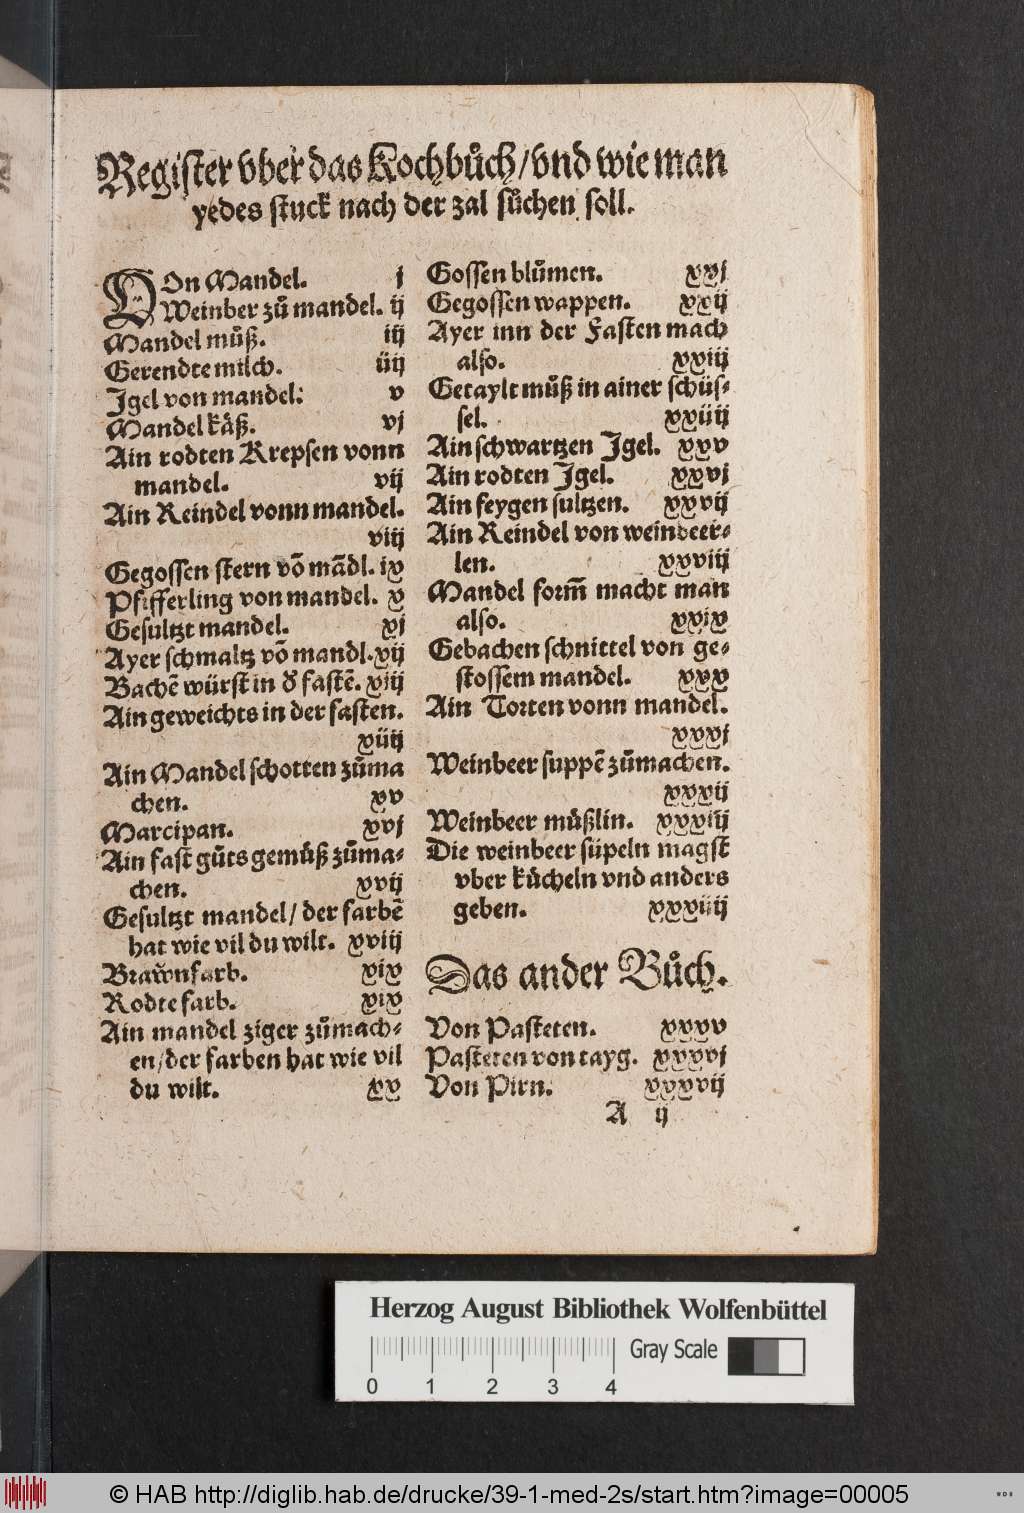 Register vber das Kochbuͦch/vnd wie man
yedes stuck nach der zal suͦchen soll.
VOn Mandel. j
Weinber zuͦ mandel. ij
Mandel muͦß. iij
Gerendte milch. iiij
Igel von mandel: v
Mandel kaͤß. vj
Ain rodten Krepsen vonn
mandel. vij
Ain Reindel vonn mandel.
viij
Gegossen stern võ mãdl. ix
Pfifferling von mandel. x
Gesultzt mandel. xj
Ayer schmaltz võ mandl. xij
Bachẽ würst in d̾ fastẽ. xiij
Ain geweichts in der fasten.
xiiij
Ain Mandel schotten zuͦma
chen. xv
Marcipan. xvj
Ain fast guͦts gemuͤß zuͦma-
chen. xvij
Gesultzt mandel/ der farbẽ
hat wie vil du wilt. xviij
Brawnfarb. xix
Rodte farb. xix
Ain mandel ziger zuͦmach-
en/der farben hat wie vil
du wilt. xx
Gossen bluͦmen. xxj
Gegossen wappen. xxij
Ayer inn der Fasten mach
also. xxiij
Getaylt muͦß in ainer schüs-
sel. xxiiij
Ain schwartzen Igel. xxv
Ain rodten Igel. xxvj
Ain feygen sultzen. xxvij
Ain Reindel von weinbeer-
len. xxviij
Mandel form̃ macht man
also. xxix
Gebachen schnittel von ge-
stossem mandel. xxx
Ain Torten vonn mandel.
xxxj
Weinbeer suppẽ zuͦmachen.
xxxij
Weinbeer muͤßlin. xxxiij
Die weinbeer süpeln magst
vber kuͤcheln vnd anders
geben. xxxiiij
Das ander Buͦch.
Von Pasteten. xxxv
Pasteten von tayg. xxxvj
Von Pirn. xxxvij
A ij
Herzog August Bibliothek Wolfenbüttel
Gray Scale
0 1 2 3 4
© HAB http://diglib.hab.de/drucke/39-1-med-2s/start.htm?image=00005